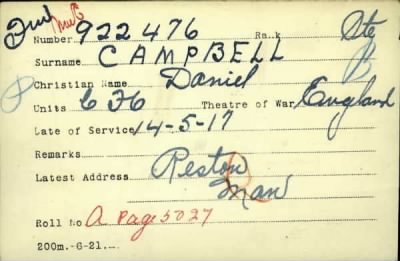 Number 922476 Rank Pte
Surname CAMPBELL
Christian Name Daniel B
Units C F C Theatre of War England
Date of Service 14-5-17
Remarks
Latest Address Reston
Man
Roll No A Page 5027
200m.-6-21.